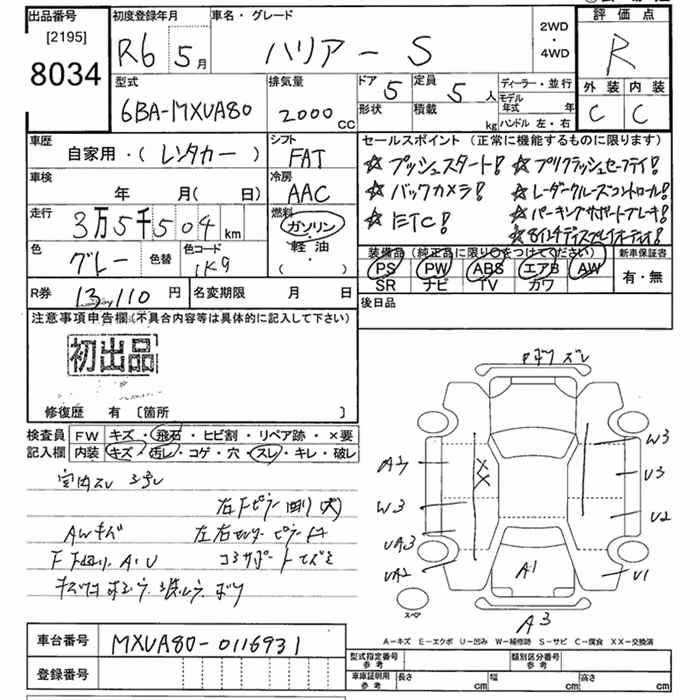 出品番号 初度登録年月 車名・グレード 2WD・4WD 評価点
[2195]
8034 R6 5月 ハリアー S R
型式 排気量 ドア 5 定員 5人 ディーラー・並行 外装 内装
6BA-MXUA80 2000cc 形状 積載 kg モデル年式 年 C C
ハンドル 左・右
車歴 シフト セールスポイント (正常に機能するものに限ります)
自家用・(レンタカー) FAT ☆プッシュスタート! ☆プリクラッシュセーフティ!
車検 冷房 ☆バックカメラ! ☆レーダークルーズコントロール!
年 月(日) AAC ☆ETC! ☆パーキングサポートブレーキ!
走行 燃料 ☆8インチディスプレイオーディオ!
3万5千504km ガソリン・軽油・( )
色 グレー 色替 色コード 1K9 装備品(純正品に限り〇をつけてください) 新車保証書
PS PW ABS エアB AW 有・無
SR ナビ TV カワ
R券 13,110円 名変期限 月 日 後日品
注意事項申告欄(不具合内容等は具体的に記入して下さい)
初出品
修復歴 有 [箇所 ]
検査員 FW キズ・飛石・ヒビ割・リペア跡・×要
記入欄 内装 キズ・汚レ・コゲ・穴・スレ・キレ・破レ
室内スレ
AWキズ
A・U
W3
U3
W3
U2
UA3
UA2
U1
A1
A3
スペア
A－キズ E－エクボ U－凹み W－補修跡 S－サビ C－腐食 XX－交換済
車台番号 MXUA80-0116931
登録番号
型式指定番号 参考 類別区分番号 参考
車庫証明用 参考 長さ cm 幅 cm 高さ cm